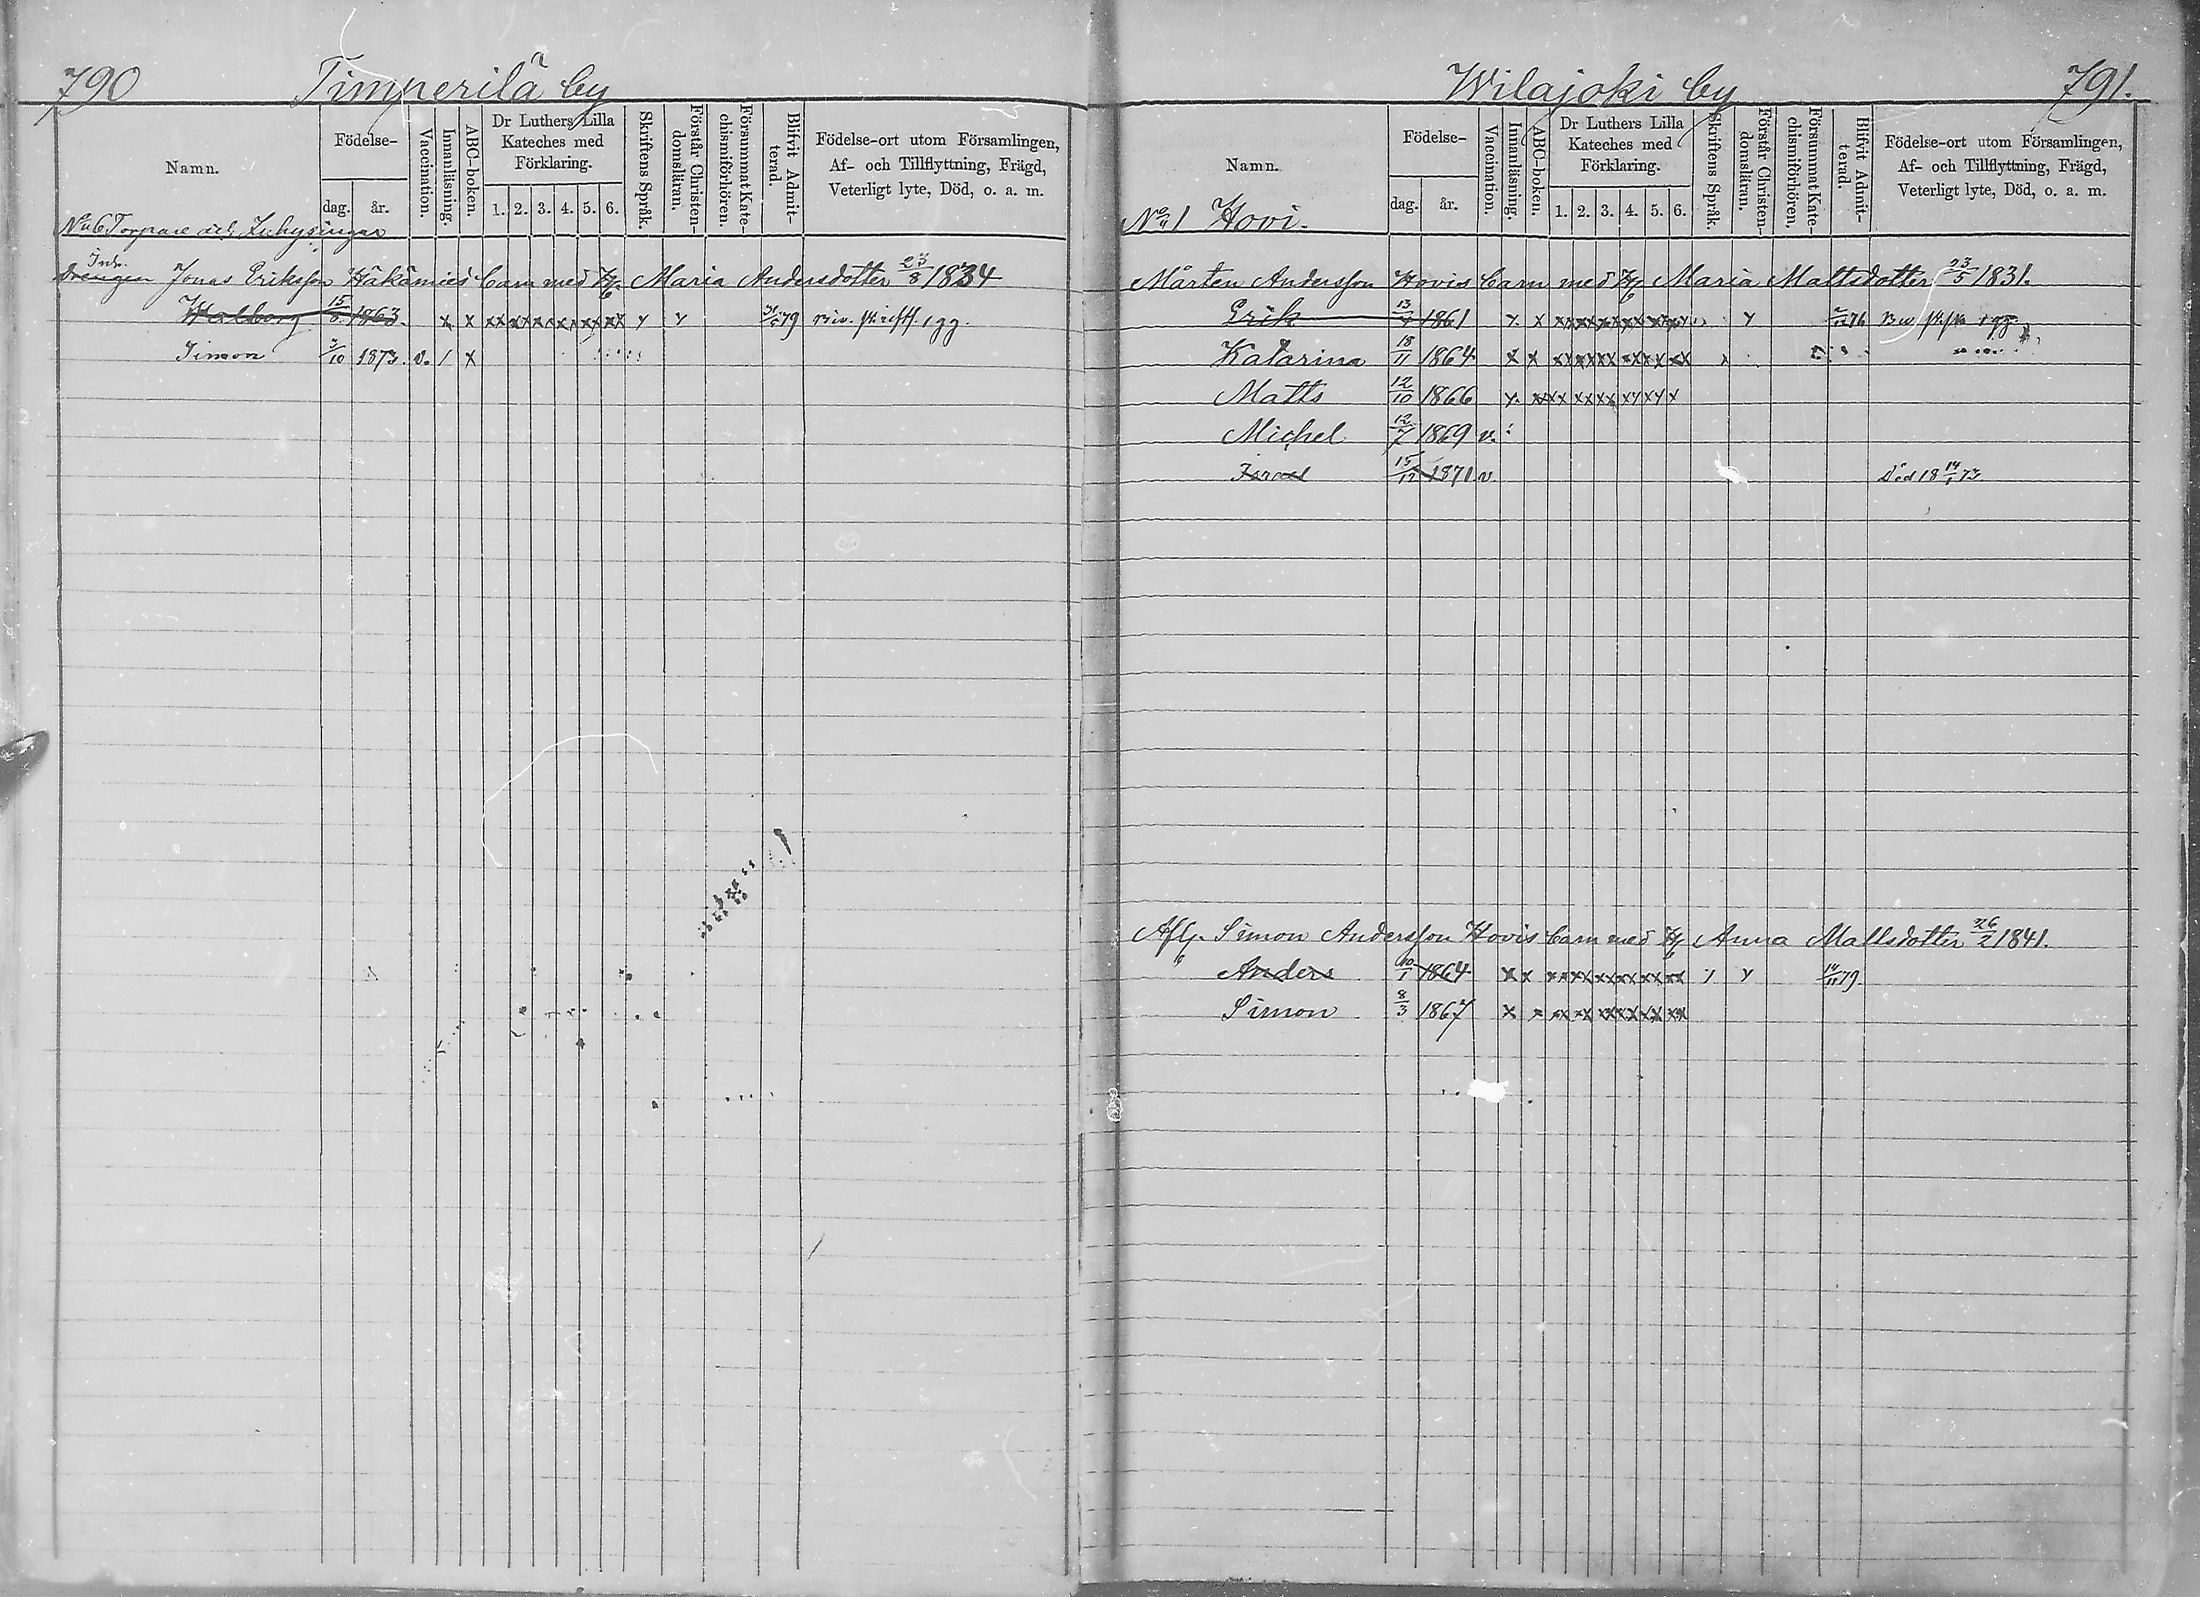 790 Timperilä by
Namn. Födelse- dag. år. Vaccination. Innanläsning. ABC-boken. Dr Luthers Lilla Kateches med Förklaring. 1. 2. 3. 4. 5. 6. Skriftens Språk. Förstår Christen-domsläran. Försummat Kate-chismiförhören. Blifvit Admit-terad. Födelse-ort utom Församlingen, Af- och Tillflyttning, Frägd, Veterligt lyte, Död, o. a. m.
No 6 Torpare och Inhysingar
Inh.
Drengen Jonas Eriksson Häkämies barn med H. Maria Andersdotter 23/8 1834
Walborg 15/8 1863. x x xx xx xx xx xx xx y y 79
Simon 3/10 1873. v. / x
Wilajoki by 791.
Namn. Födelse- dag. år. Vaccination. Innanläsning. ABC-boken. Dr Luthers Lilla Kateches med Förklaring. 1. 2. 3. 4. 5. 6. Skriftens Språk. Förstår Christen-domsläran. Försummat Kate-chismiförhören. Blifvit Admit-terad. Födelse-ort utom Församlingen, Af- och Tillflyttning, Frägd, Veterligt lyte, Död, o. a. m.
No 1 Hovi.
Mårten Andersson Hovis barn med H. Maria Mattsdotter 23/5 1831.
Erik 1861 x x xx xx xx xx xx xx y 76
Katarina 18/11 1864 x x xx xx xx xx xx xx
Matts 12/10 1866 x x xx xx xx xx xx x
Michel 12/7 1869 v.
Israel 15/12 1871 v Död 18 14/1 73
Afl. Simon Andersson Hovis barn med H. Anna Mattsdotter 26/2 1841.
Anders 10/1 1864 x x xx xx xx xx xx xx y y 14/11 79.
Simon 8/3 1867 x x xx xx xx xx xx xx